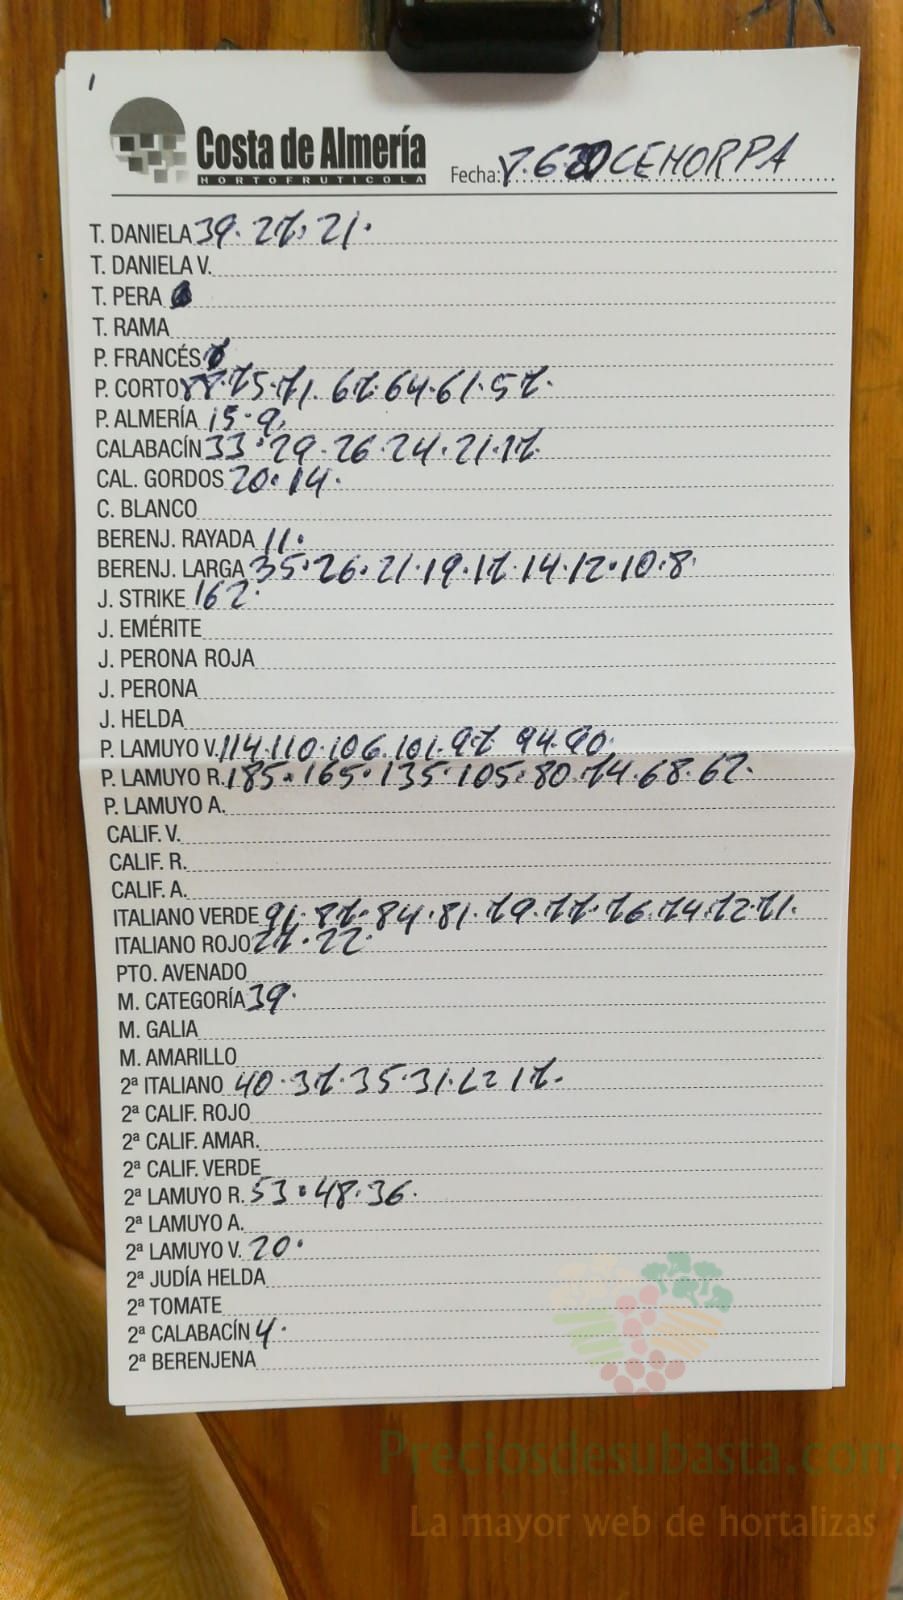 1
Costa de Almería
HORTOFRUTICOLA
Fecha: CEHORPA
T. DANIELA 39. 27. 21.
T. DANIELA V.
T. PERA
T. RAMA
P. FRANCÉS
P. CORTO 75. 71. 67. 64. 61. 57.
P. ALMERÍA 15. 9.
CALABACÍN 33. 29. 26. 24. 21. 17.
CAL. GORDOS 20. 14.
C. BLANCO
BERENJ. RAYADA 11.
BERENJ. LARGA 35. 26. 21. 19. 17. 14. 12. 10. 8.
J. STRIKE 162.
J. EMÉRITE
J. PERONA ROJA
J. PERONA
J. HELDA
P. LAMUYO V. 114. 110. 106. 101. 97. 94. 90.
P. LAMUYO R. 185. 165. 135. 105. 80. 74. 68. 62.
P. LAMUYO A.
CALIF. V.
CALIF. R.
CALIF. A.
ITALIANO VERDE 91. 87. 84. 81. 79. 77. 76. 74. 72. 71.
ITALIANO ROJO 27. 22.
PTO. AVENADO
M. CATEGORÍA 39.
M. GALIA
M. AMARILLO
2ª ITALIANO 40. 37. 35. 31. 17.
2ª CALIF. ROJO
2ª CALIF. AMAR.
2ª CALIF. VERDE
2ª LAMUYO R. 53. 48. 36.
2ª LAMUYO A.
2ª LAMUYO V. 20.
2ª JUDÍA HELDA
2ª TOMATE
2ª CALABACÍN 4.
2ª BERENJENA
Preciosdesubasta.com
La mayor web de hortalizas